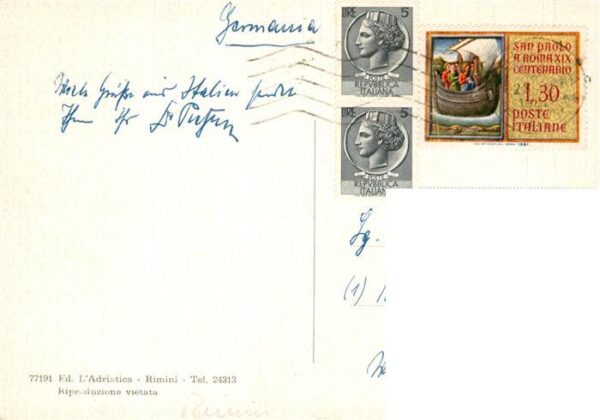 Germania
Viele Grüße aus Italien sendet
Ihnen Ihr Dr.
LIRE 5
POSTE
REPVBBLICA
ITALIANA
LIRE 5
POSTE
REPVBBLICA
ITALIANA
SAN PAOLO
A ROMA XIX
CENTENARIO
L.30
POSTE
ITALIANE
1961
(1)
77191 Ed. L'Adriatica - Rimini - Tel. 24313
Riproduzione vietata
Rimini